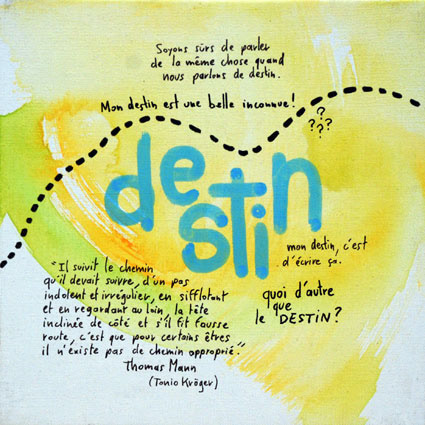 Soyons sûrs de parler
de la même chose quand
nous parlons de destin.
Mon destin est une belle inconnue !
?
???
de
stin
mon destin, c'est
d'écrire ça.
"Il suivit le chemin
qu'il devait suivre, d'un pas
indolent et irrégulier, en sifflotant
et en regardant au loin, la tête
inclinée de côté et s'il fit fausse
route, c'est que pour certains êtres
il n'existe pas de chemin approprié."
Thomas Mann
(Tonio Kröger)
quoi d'autre
que
le DESTIN ?